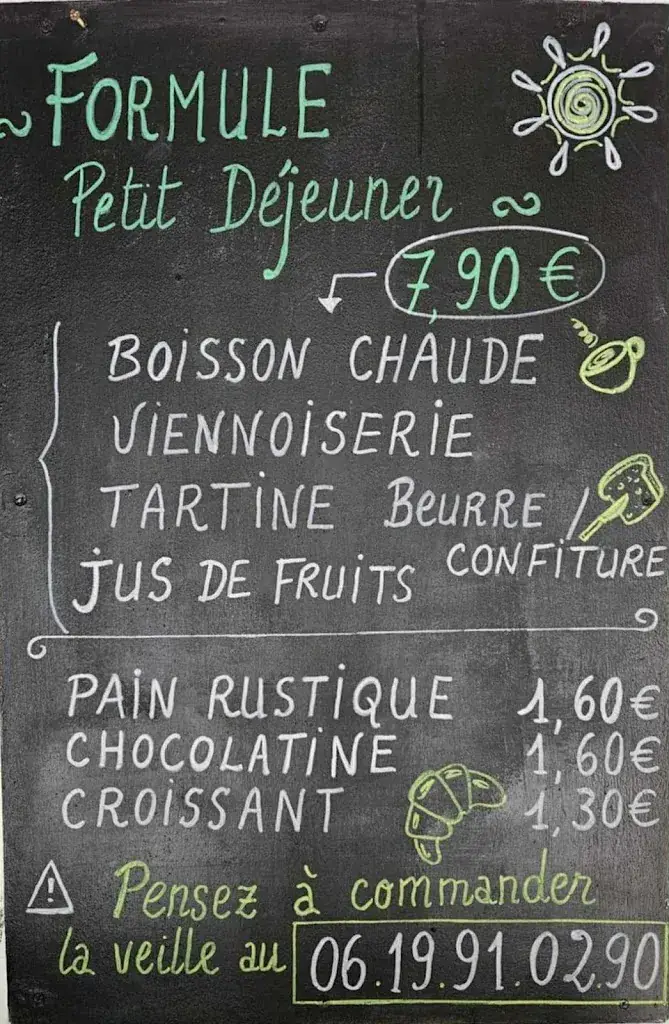 FORMULE
Petit Déjeuner
7,90 €
BOISSON CHAUDE
VIENNOISERIE
TARTINE BEURRE /
CONFITURE
JUS DE FRUITS
PAIN RUSTIQUE 1,60€
CHOCOLATINE 1,60€
CROISSANT 1,30€
! Pensez à commander
la veille au 06.19.91.02.90